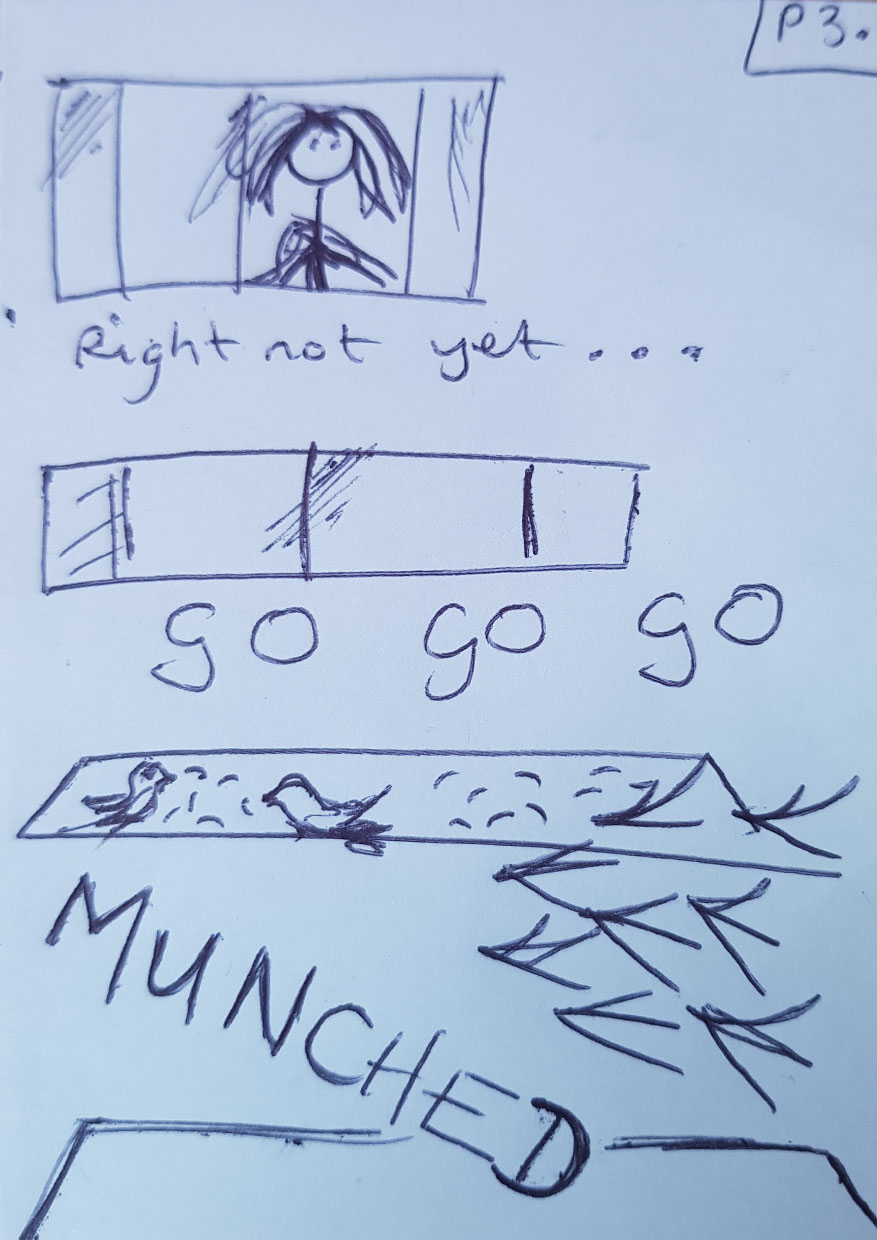 P3.
Right not yet...
go go go
MUNCHED